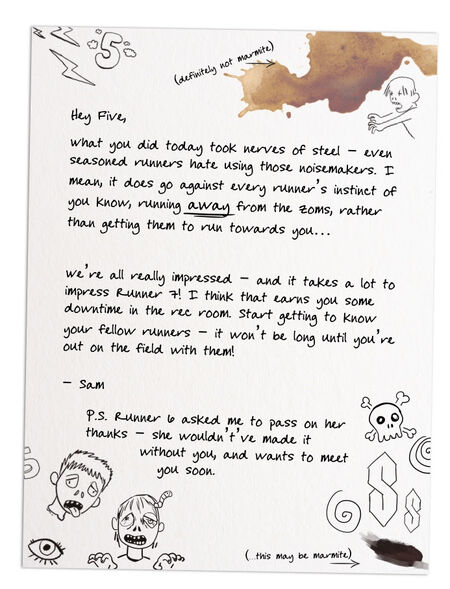 5
(definitely not marmite)
Hey Five,
what you did today took nerves of steel – even
seasoned runners hate using those noisemakers. I
mean, it does go against every runner's instinct of
you know, running away from the zoms, rather
than getting them to run towards you...
we're all really impressed – and it takes a lot to
impress Runner 7! I think that earns you some
downtime in the rec room. Start getting to know
your fellow runners – it won't be long until you're
out on the field with them!
– Sam
P.S. Runner 6 asked me to pass on her
thanks – she wouldn't've made it
without you, and wants to meet
you soon.
5
S
S
(...this may be marmite)